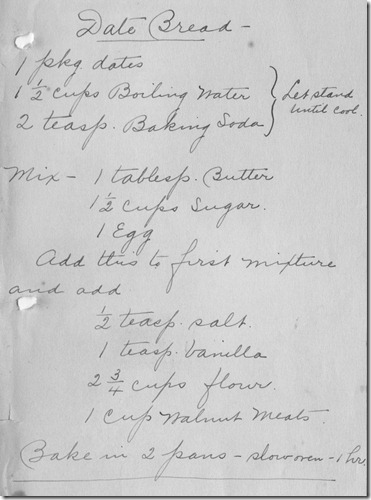 Date Bread -
1 pkg dates
1 1/2 cups Boiling Water
2 teasp. Baking Soda
Let stand
until cool.
Mix - 1 tablesp. Butter
1 1/2 cups Sugar.
1 Egg
Add this to first mixture
and add
1/2 teasp. salt.
1 teasp. Vanilla
2 3/4 cups flour.
1 Cup Walnut Meats.
Bake in 2 pans - slow oven - 1 hr.